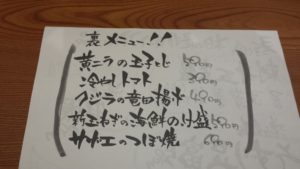 裏メニュー!!
黄ニラの玉子とじ 590円
冷やしトマト 390円
クジラの竜田揚げ 490円
新玉ねぎの海鮮の汁盛 590円
サザエのつぼ焼 690円